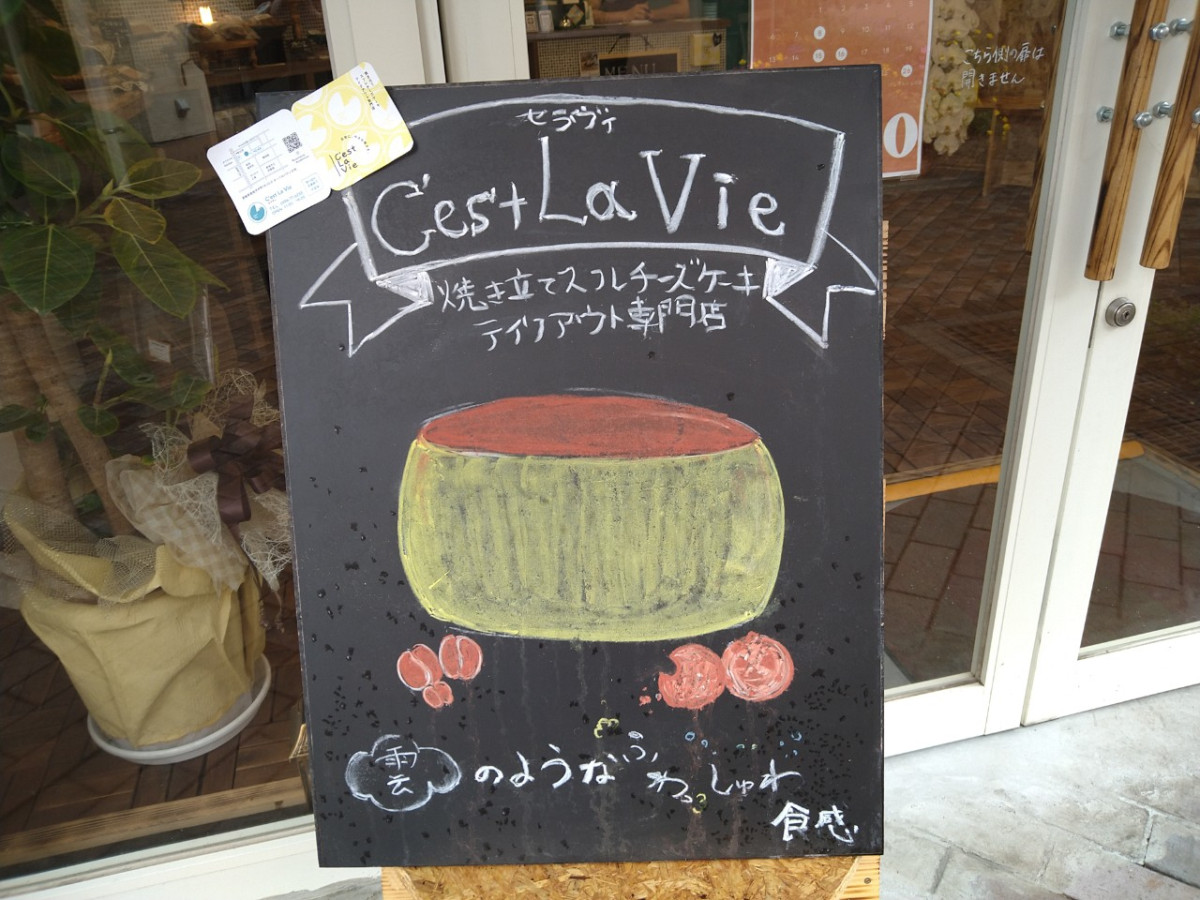 セラヴィ
C'est La Vie
焼き立てスフレチーズケーキ
テイクアウト専門店
雲のようなふわっしゅわ
食感
C'est
La
Vie
C'est La Vie
MENU
こちら側の扉は
開きません
0